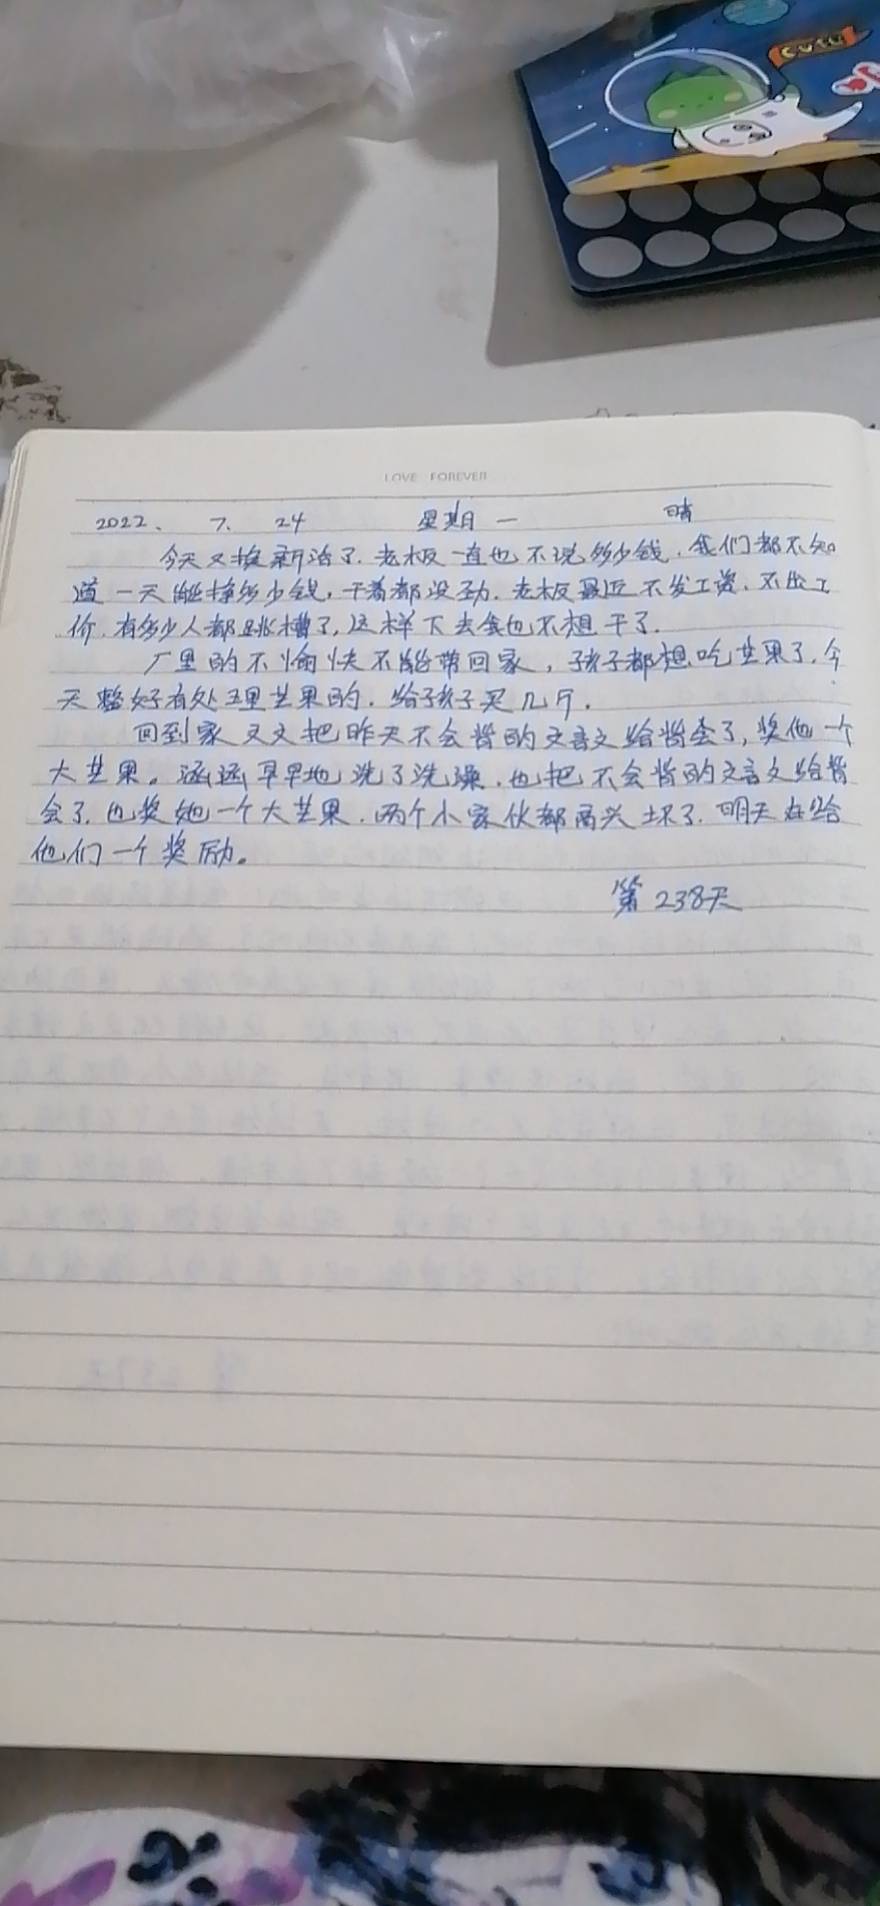 CUTE
LOVE FOREVER
2022、 7、 24 星期一 晴
今天又换新活了.老板一直也不说多少钱.我们都不知
道一天能挣多少钱,干着都没劲.老板最近不发工资、不出工
价.有多少人都跳槽了,这样下去我也不想干了.
厂里的不愉快不能带回家,孩子都想吃苹果了.今
天整好有处理苹果的.给孩子买几斤.
回到家文文把昨天不会背的文言文给背会了,奖他一个
大苹果。涵涵早早地洗了洗澡.也把不会背的文言文给背
会了.也奖她一个大苹果.两个小家伙都高兴坏了.明天在给
他们一个奖励。
第238天